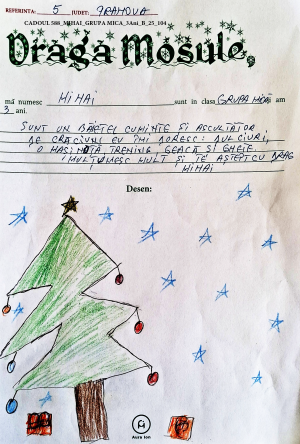 REFERINTA: 5 JUDET: PRAHOVA
CADOUL 588_MIHAI_GRUPA MICA_3Ani_B_25_104
Draga Mosule,
mă numesc MIHAI sunt in clasa GRUPA MICĂ am
3 ani.
SUNT UN BĂIEȚEL CUMINTE ȘI ASCULTATOR
DE CRĂCIUN EU ÎMI DORESC: DULCIURI,
O MAȘINUȚĂ, TRENING, GEACĂ SI GHETE.
MULȚUMESC MULT ȘI TE AȘTEPT CU DRAG
MIHAI
Desen:
Aura Ion